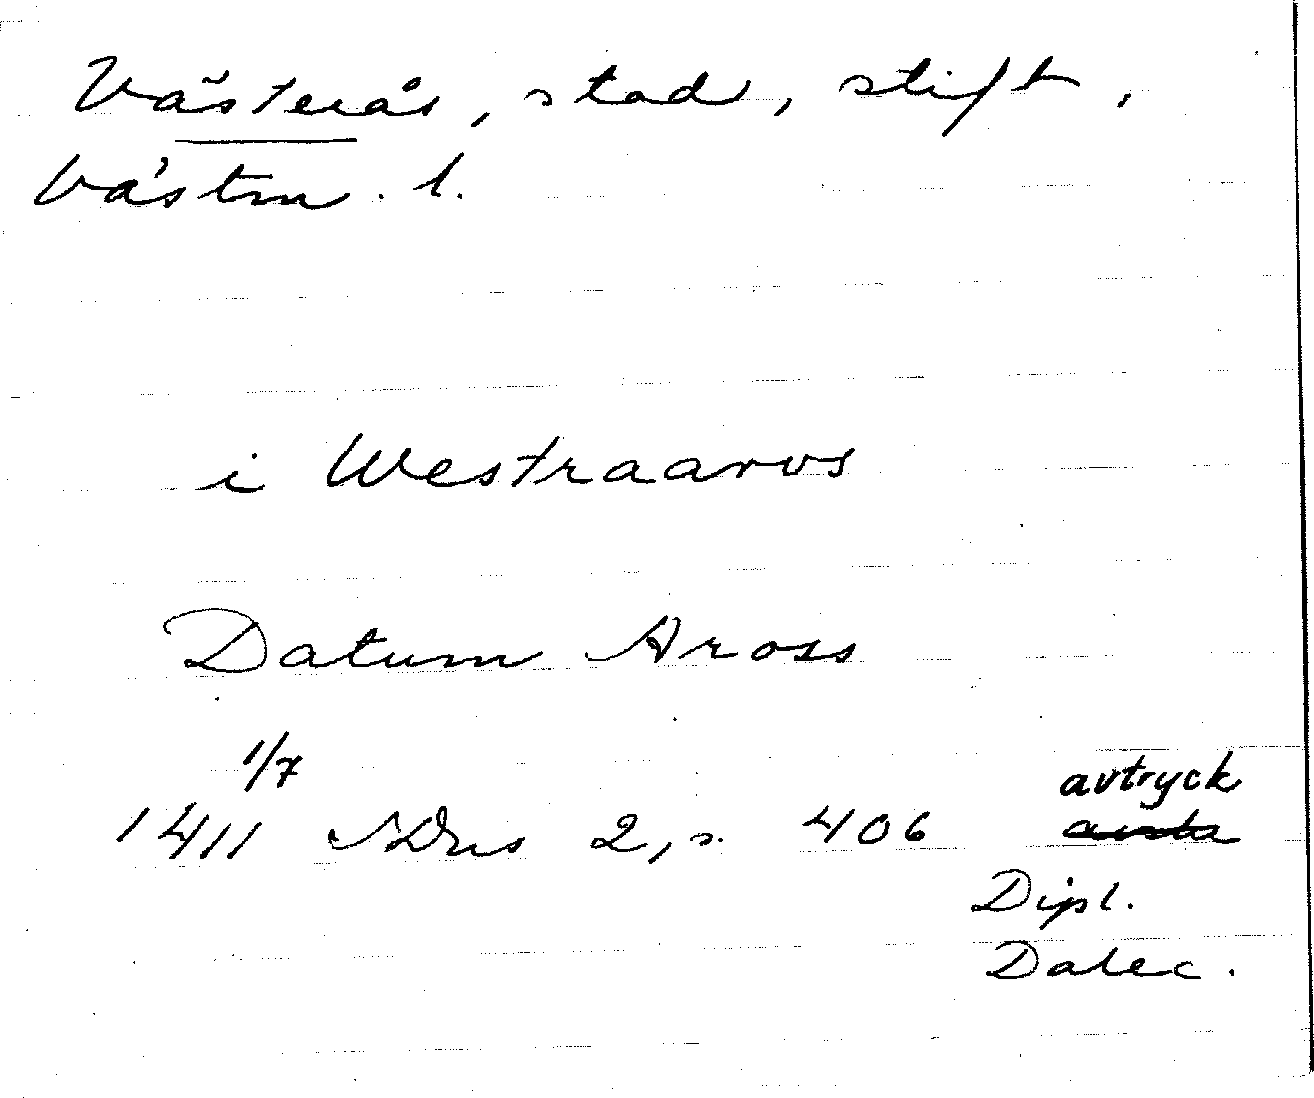 Västerås, stad, stift,
Västm. l.
i Westraaros
Datum Aross
1/7
1411 SDns 2, s. 406
avtryck
Dipl.
Dalec.